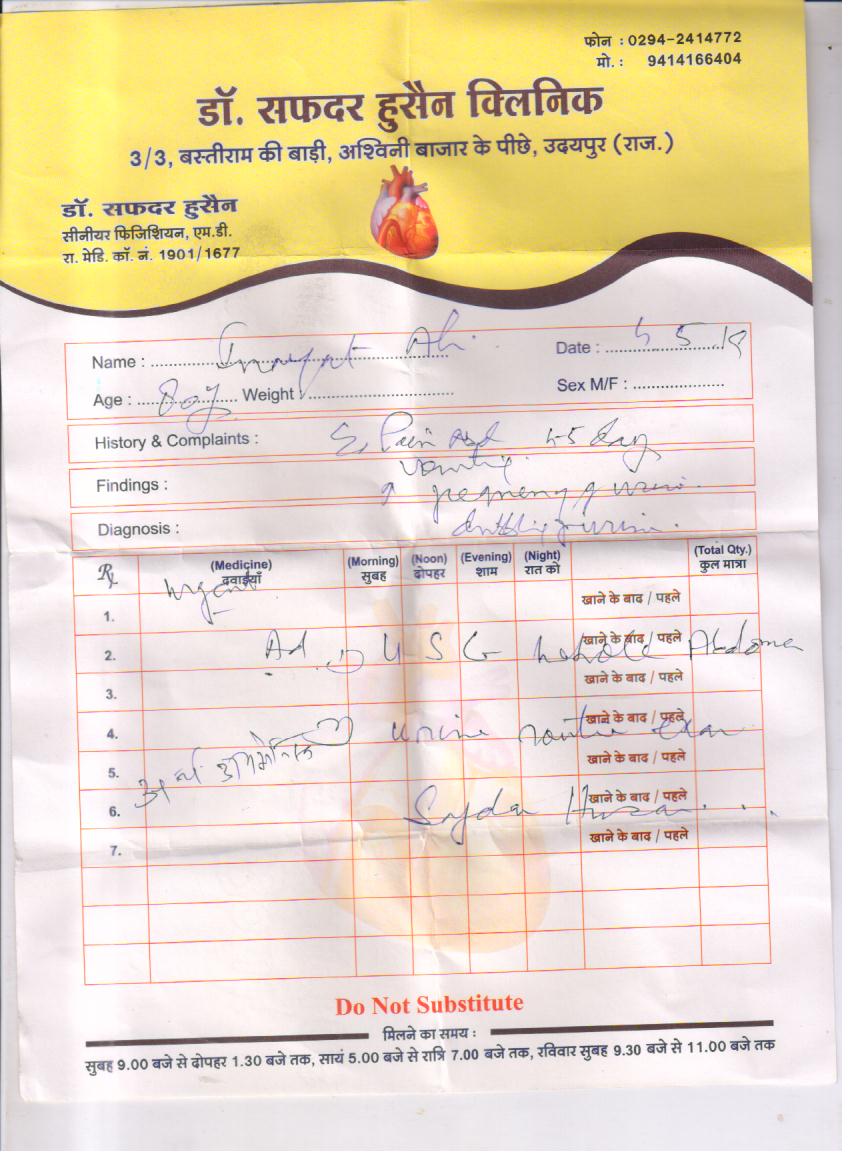 फोन : 0294-2414772
मो. : 9414166404
डॉ. सफदर हुसैन क्लिनिक
3/3, बस्तीराम की बाड़ी, अश्विनी बाजार के पीछे, उदयपुर (राज.)
डॉ. सफदर हुसैन
सीनीयर फिजिशियन, एम.डी.
रा. मेडि. कॉ. नं. 1901/1677
Name : Date : 5 5
Age : 80y Weight : Sex M/F :
History & Complaints : Pain Abd 4-5 day
Findings :
frequency of urine.
Diagnosis : of urine.
Rx (Medicine) दवाईयाँ (Morning) सुबह (Noon) दोपहर (Evening) शाम (Night) रात को (Total Qty.) कुल मात्रा
Urgent
1. खाने के बाद / पहले
2. Ad 1) U S G whole Abdomen खाने के बाद / पहले
3. खाने के बाद / पहले
4. 2) Urine routine exam खाने के बाद / पहले
5. खाने के बाद / पहले
6. Safdar Husain खाने के बाद / पहले
7. खाने के बाद / पहले
Do Not Substitute
मिलने का समय :
सुबह 9.00 बजे से दोपहर 1.30 बजे तक, सायं 5.00 बजे से रात्रि 7.00 बजे तक, रविवार सुबह 9.30 बजे से 11.00 बजे तक